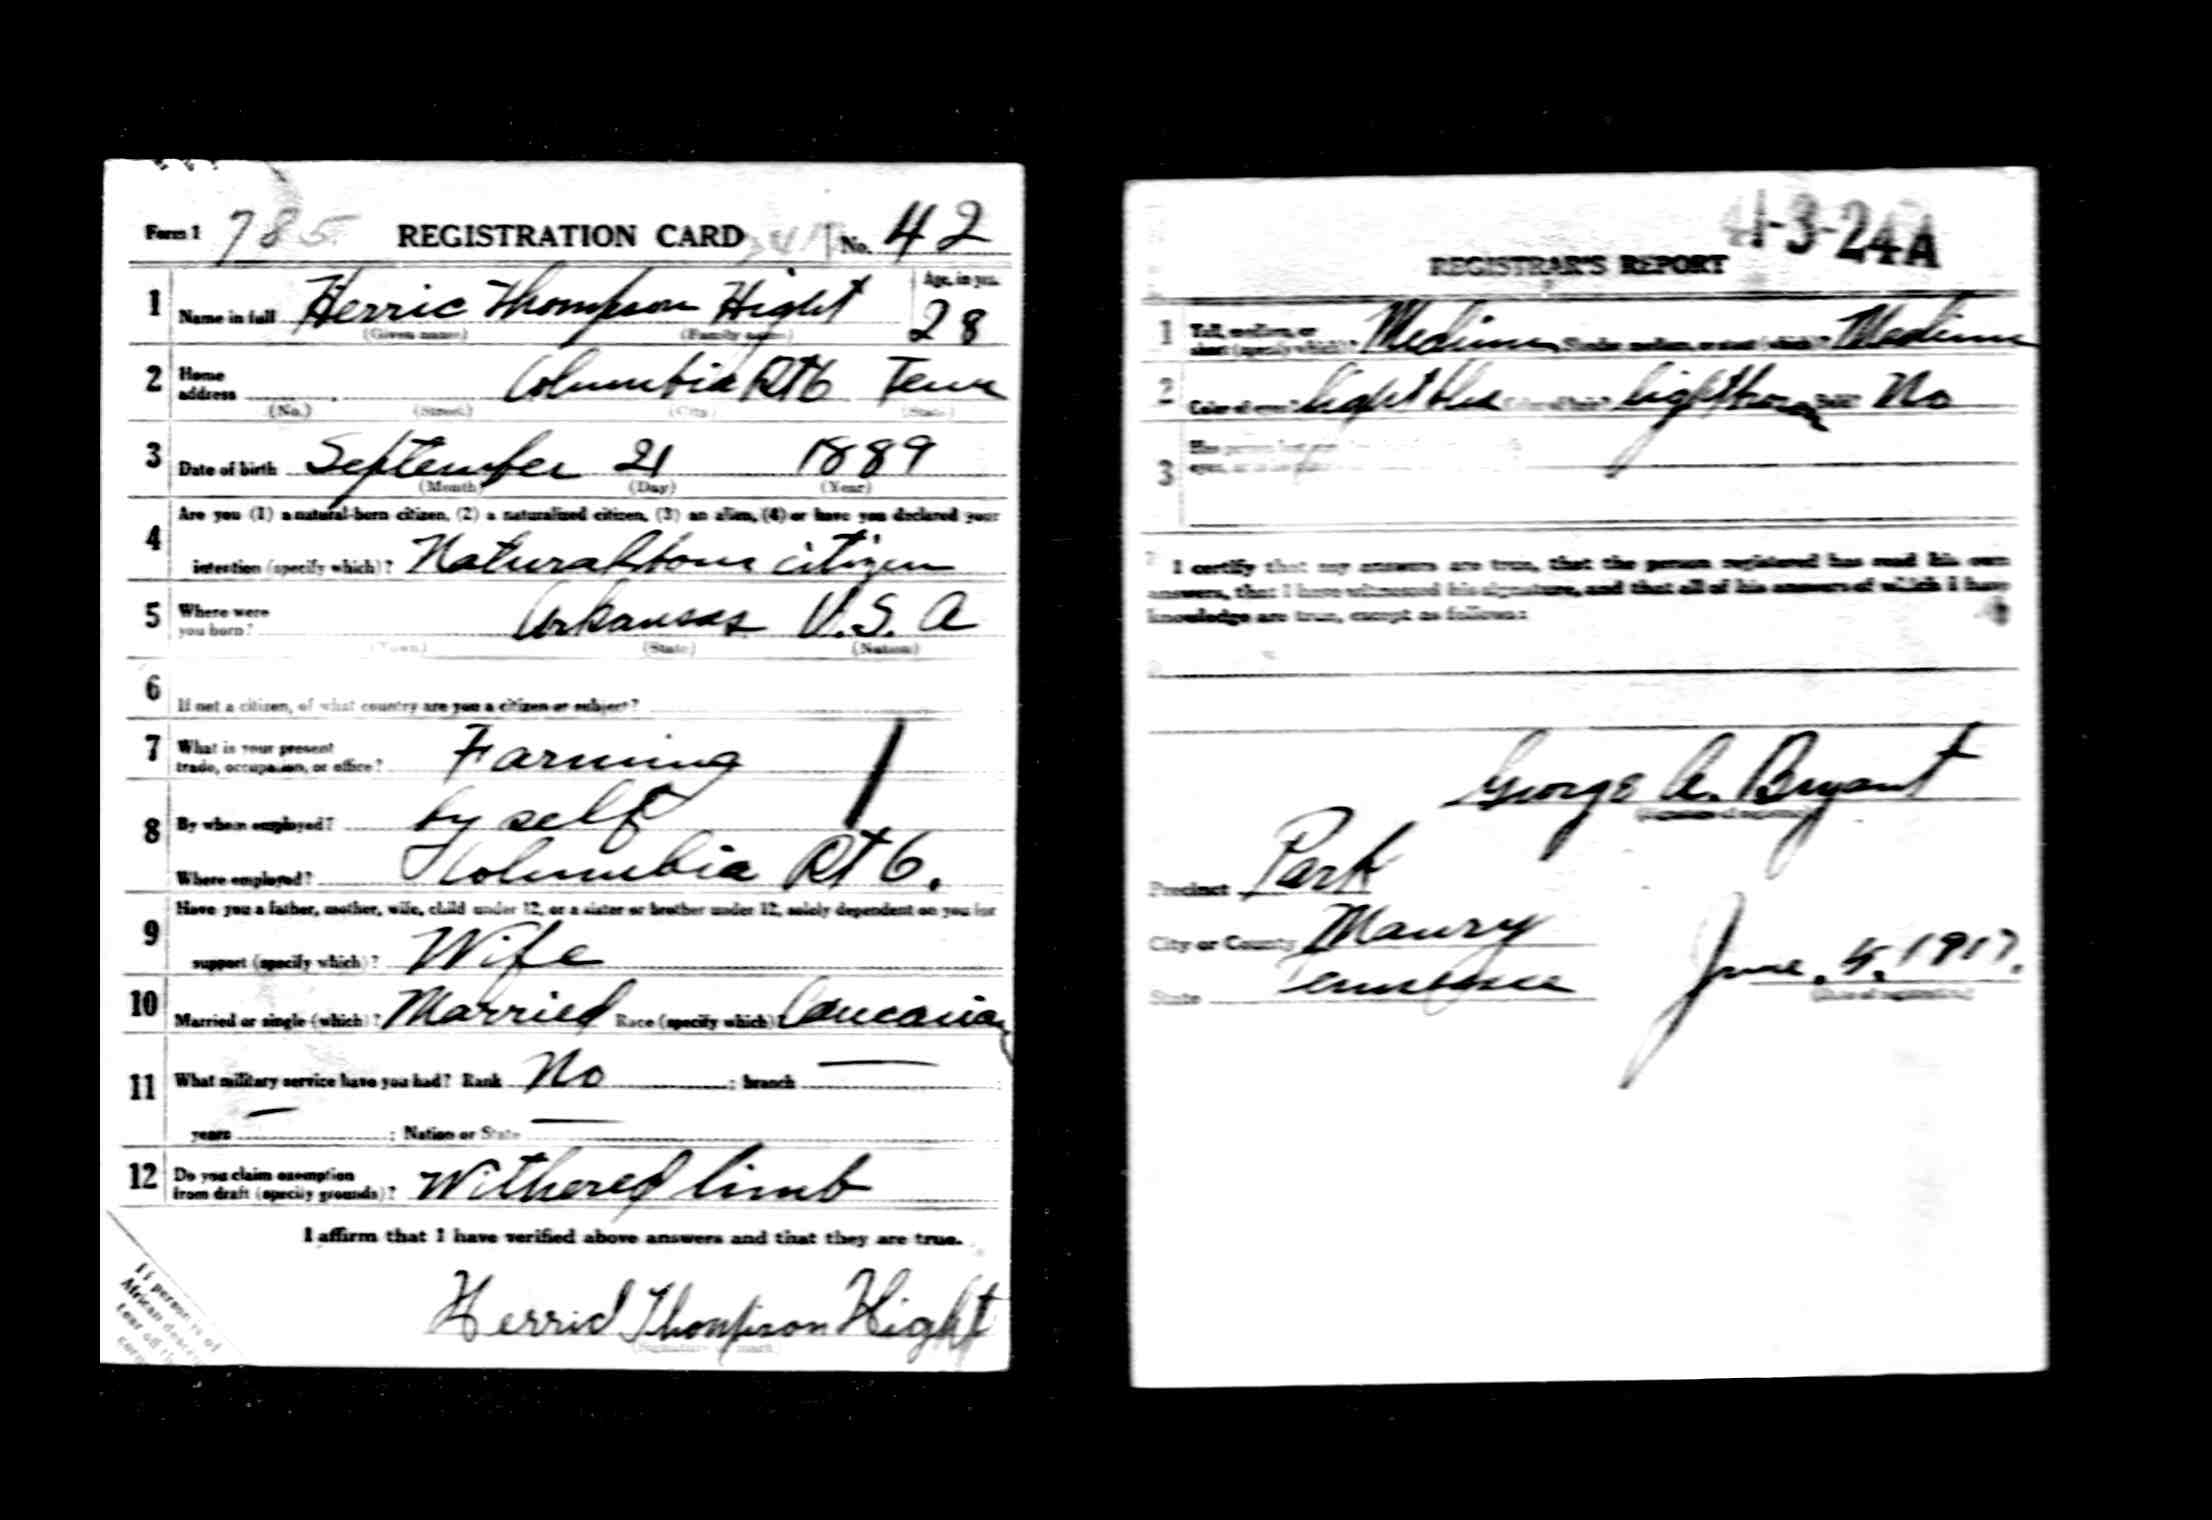 Form 1 785 REGISTRATION CARD No. 42
1 Name in full Herric Thompson Hight Age, in yrs. 28
(Given name) (Family name)
2 Home address Columbia Rt 6 Tenn
(No.) (Street) (City) (State)
3 Date of birth September 21 1889
(Month) (Day) (Year)
4 Are you (1) a natural-born citizen, (2) a naturalized citizen, (3) an alien, (4) or have you declared your
intention (specify which)? Natural born citizen
5 Where were you born? Arkansas U.S.A
(Town) (State) (Nation)
6 If not a citizen, of what country are you a citizen or subject?
7 What is your present trade, occupation, or office? Farming
8 By whom employed? by self
Where employed? Columbia Rt 6.
9 Have you a father, mother, wife, child under 12, or a sister or brother under 12, solely dependent on you for
support (specify which)? Wife
10 Married or single (which)? Married Race (specify which)? Caucasian
11 What military service have you had? Rank No ; branch —
years — ; Nation or State —
12 Do you claim exemption from draft (specify grounds)? Withered limb
I affirm that I have verified above answers and that they are true.
Herrid Thompson Hight
(Signature or mark)
If person is of
African descent
tear off this
corner
41-3-24A
REGISTRAR'S REPORT
1 Tall, medium, or short (specify which)? Medium Slender, medium, or stout (which)? Medium
2 Color of eyes? light blue Color of hair? light brown Bald? No
3 Has person lost
I certify that my answers are true, that the person registered has read his own
answers, that I have witnessed his signature, and that all of his answers of which I have
knowledge are true, except as follows:
George A. Bryant
(Signature of registrar)
Precinct Park
City or County Maury
State Tennessee June. 5. 1917.
(Date of registration)